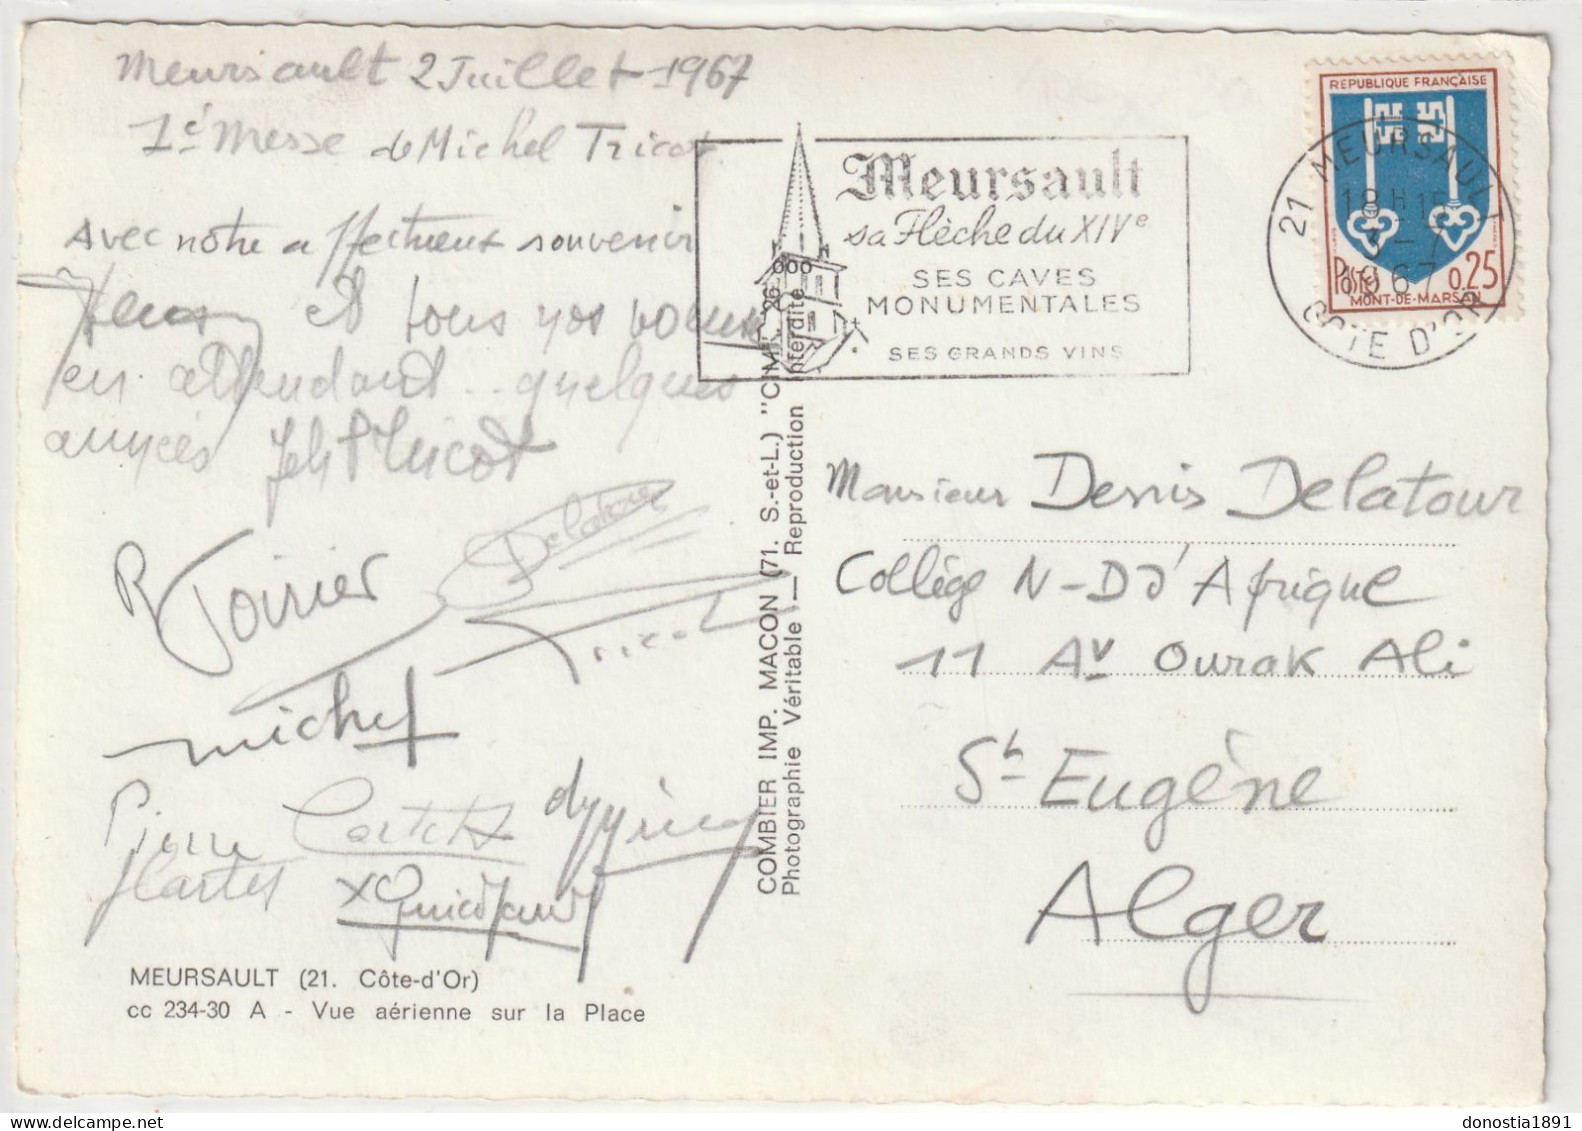 Meursault 2 Juillet 1967
1e Messe de Michel Tricot.
Avec notre affectueux souvenir
et tous nos
en attendant .. quelques
années Tricot
R Poirier
Delatour
Tricot
michel
Pierre
MEURSAULT (21. Côte-d'Or)
cc 234-30 A - Vue aérienne sur la Place
COMBIER IMP. MACON (71. S.-et-L.) "CIM"
Photographie Véritable — Reproduction interdite
Meursault
sa Flèche du XIVe
SES CAVES
MONUMENTALES
SES GRANDS VINS
21 MEURSAULT
18H15
3-7
1967
COTE D'OR
REPUBLIQUE FRANÇAISE
POSTES 0,25
MONT-DE-MARSAN
Monsieur Denis Delatour
Collège N-D d'Afrique
11 Av Ourak Ali
St-Eugène
Alger
donostia1891